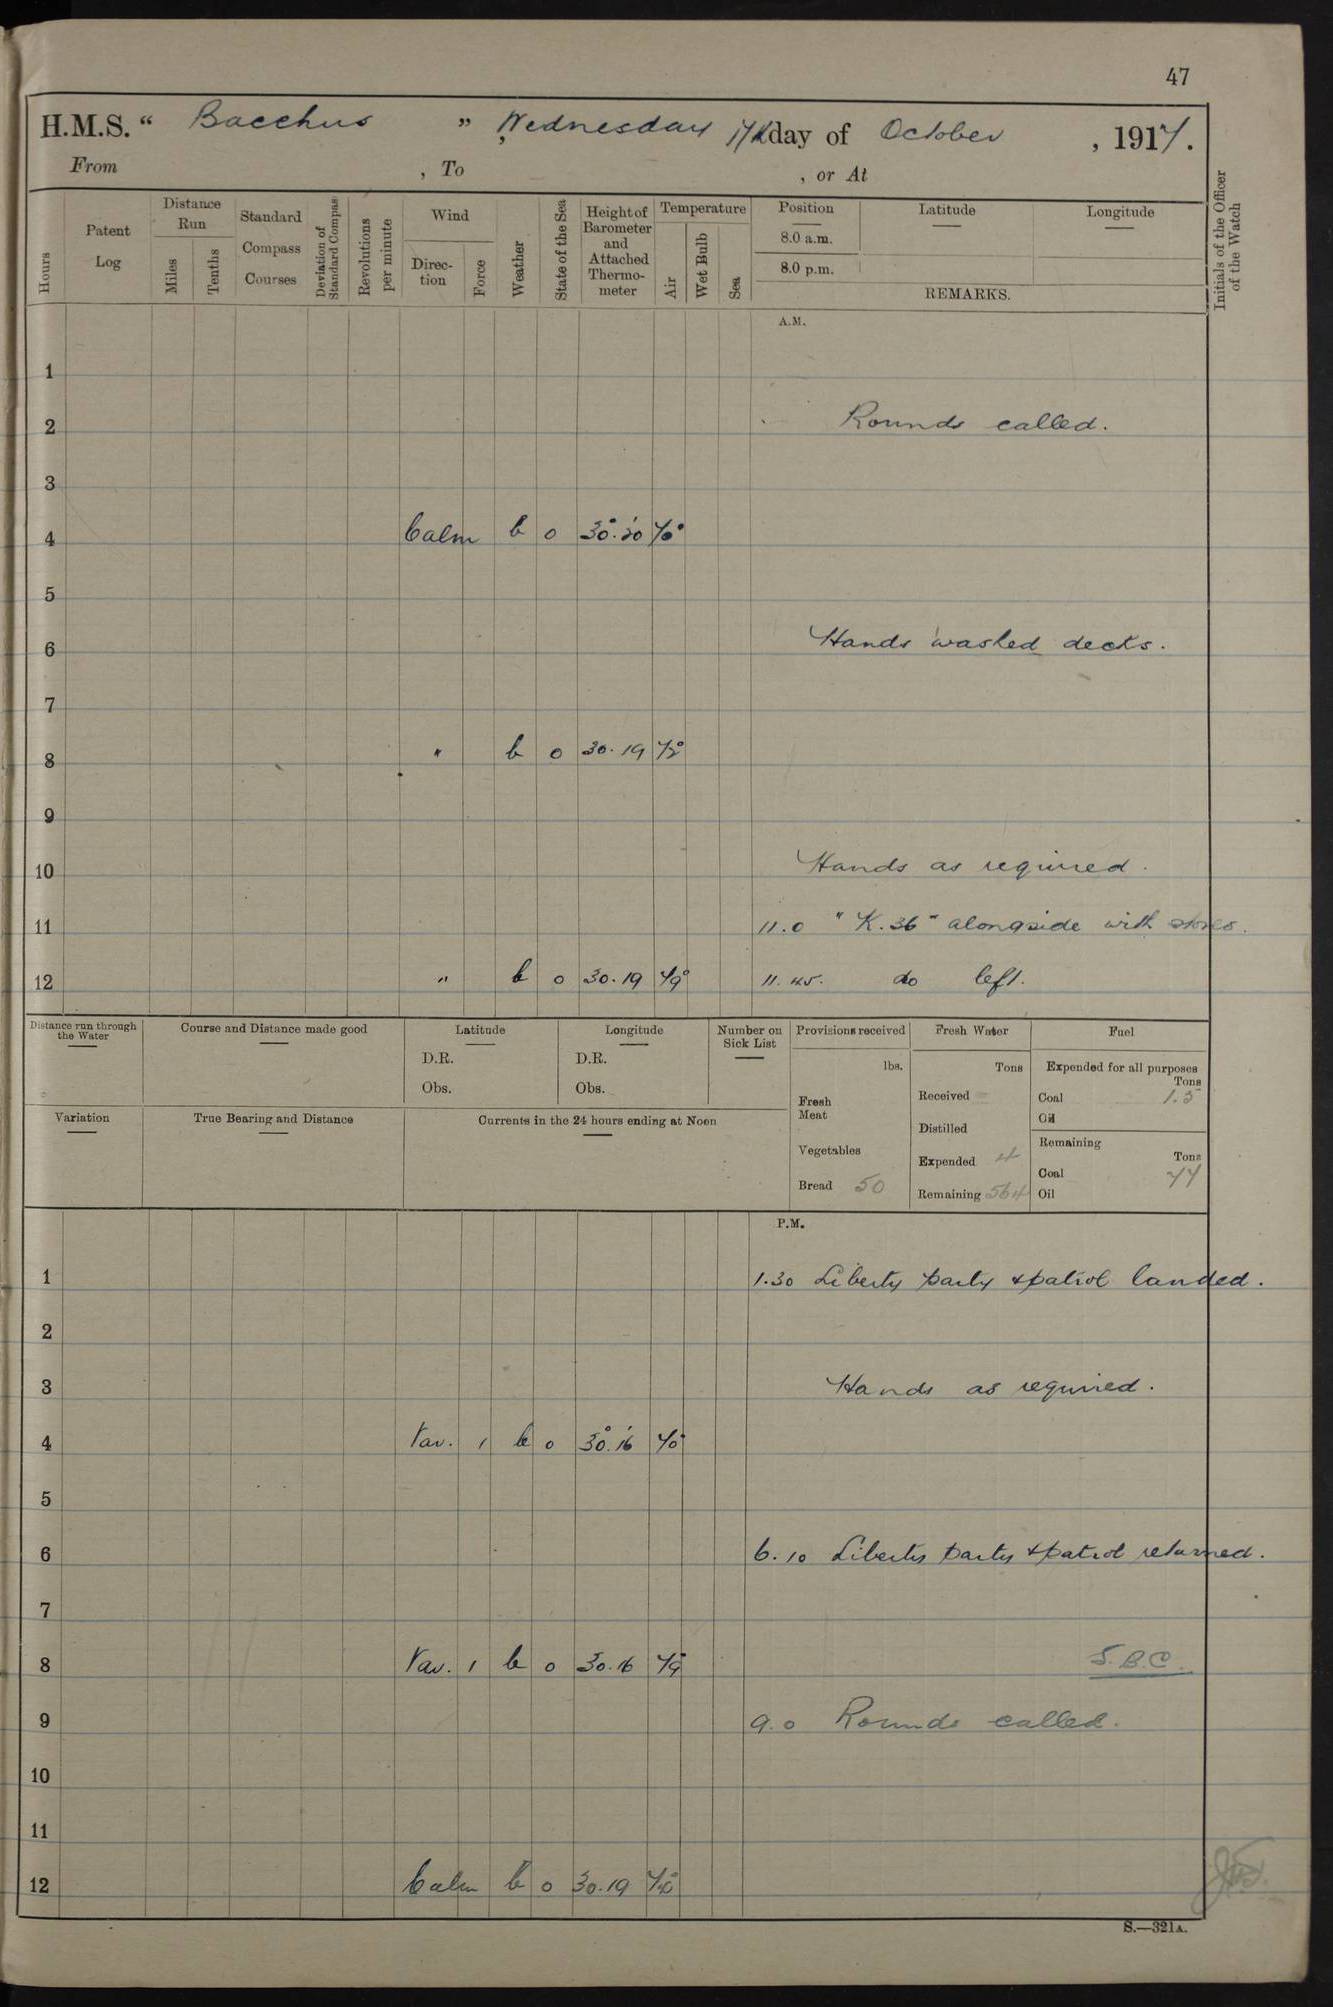 47
H.M.S. “ Bacchus ” , Wednesday 17th day of October , 1917.
From , To , or At
Hours
Patent Log
Distance Run
Miles
Tenths
Standard Compass Courses
Deviation of Standard Compass
Revolutions per minute
Wind
Direction
Force
Weather
State of the Sea
Height of Barometer and Attached Thermometer
Temperature
Air
Wet Bulb
Sea
Position Latitude Longitude
8.0 a.m.
8.0 p.m.
REMARKS.
Initials of the Officer of the Watch
A.M.
1
2 Rounds called.
3
4 Calm b o 30.20 70°
5
6 Hands washed decks.
7
8 " b o 30.19 72°
9
10 Hands as required.
11 11.0 "K.36" alongside with stores.
12 " b o 30.19 79° 11.45. do left.
Distance run through the Water
Course and Distance made good
Latitude
D.R.
Obs.
Longitude
D.R.
Obs.
Number on Sick List
Provisions received
lbs.
Fresh Meat
Vegetables
Bread 50
Fresh Water
Tons
Received
Distilled
Expended 4
Remaining 564
Fuel
Expended for all purposes
Tons
Coal 1.5
Oil
Remaining
Tons
Coal 77
Oil
Variation
True Bearing and Distance
Currents in the 24 hours ending at Noon
P.M.
1 1.30 Liberty party & patrol landed.
2
3 Hands as required.
4 Var. 1 b o 30.16 70°
5
6 6.10 Liberty party & patrol returned.
7
8 Var. 1 b o 30.16 79° S.B.C.
9 9.0 Rounds called.
10
11
12 Calm b o 30.19
S.—321A.